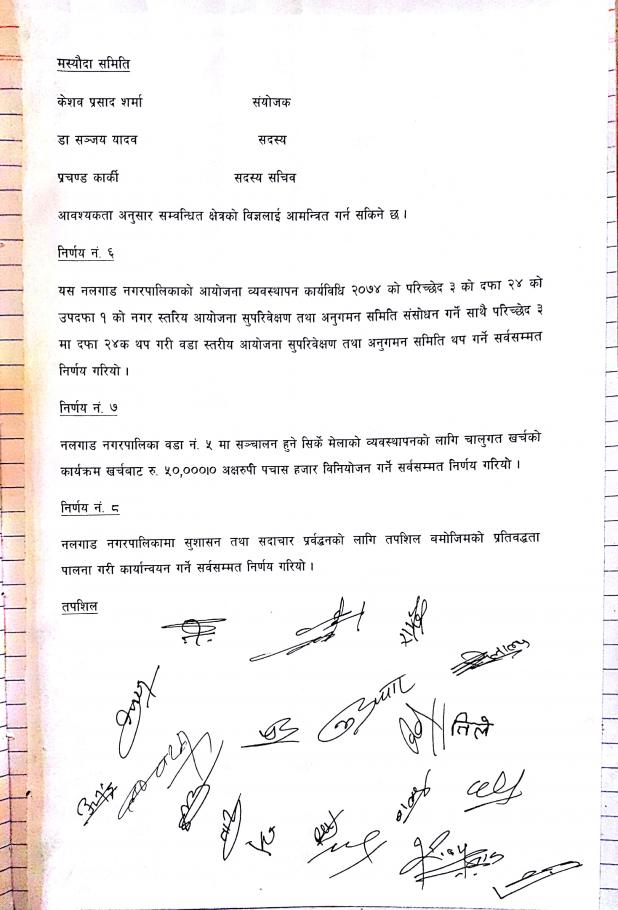 मस्यौदा समिति
केशव प्रसाद शर्मा संयोजक
डा सञ्जय यादव सदस्य
प्रचण्ड कार्की सदस्य सचिव
आवश्यकता अनुसार सम्वन्धित क्षेत्रको विज्ञलाई आमन्त्रित गर्न सकिने छ ।
निर्णय नं. ६
यस नलगाड नगरपालिकाको आयोजना व्यवस्थापन कार्यविधि २०७४ को परिच्छेद ३ को दफा २४ को
उपदफा १ को नगर स्तरिय आयोजना सुपरिवेक्षण तथा अनुगमन समिति संसोधन गर्ने साथै परिच्छेद ३
मा दफा २४क थप गरी वडा स्तरीय आयोजना सुपरिवेक्षण तथा अनुगमन समिति थप गर्ने सर्वसम्मत
निर्णय गरियो ।
निर्णय नं. ७
नलगाड नगरपालिका वडा नं. ५ मा सञ्चालन हुने सिर्के मेलाको व्यवस्थापनको लागि चालुगत खर्चको
कार्यक्रम खर्चबाट रु. ५०,०००।० अक्षरुपी पचास हजार विनियोजन गर्ने सर्वसम्मत निर्णय गरियो ।
निर्णय नं. ८
नलगाड नगरपालिकामा सुशासन तथा सदाचार प्रर्वद्धनको लागि तपशिल वमोजिमको प्रतिवद्धता
पालना गरी कार्यान्वयन गर्ने सर्वसम्मत निर्णय गरियो ।
तपशिल
तिले